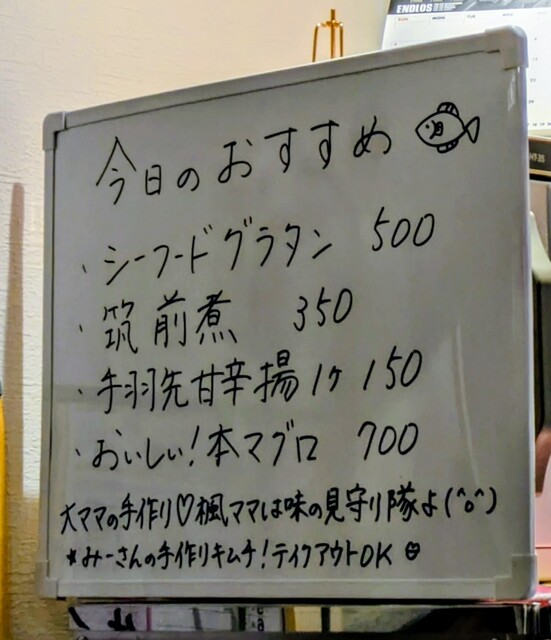 ENDLOS
今日のおすすめ
・シーフードグラタン 500
・筑前煮 350
・手羽先甘辛揚1ヶ 150
・おいしい!本マグロ 700
大ママの手作り♡楓ママは味の見守り隊よ(^o^)
*みーさんの手作りキムチ!テイクアウトOK